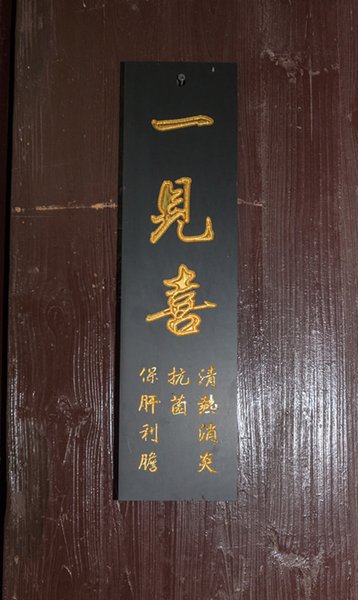 一見喜
清熱消炎
抗菌
保肝利膽